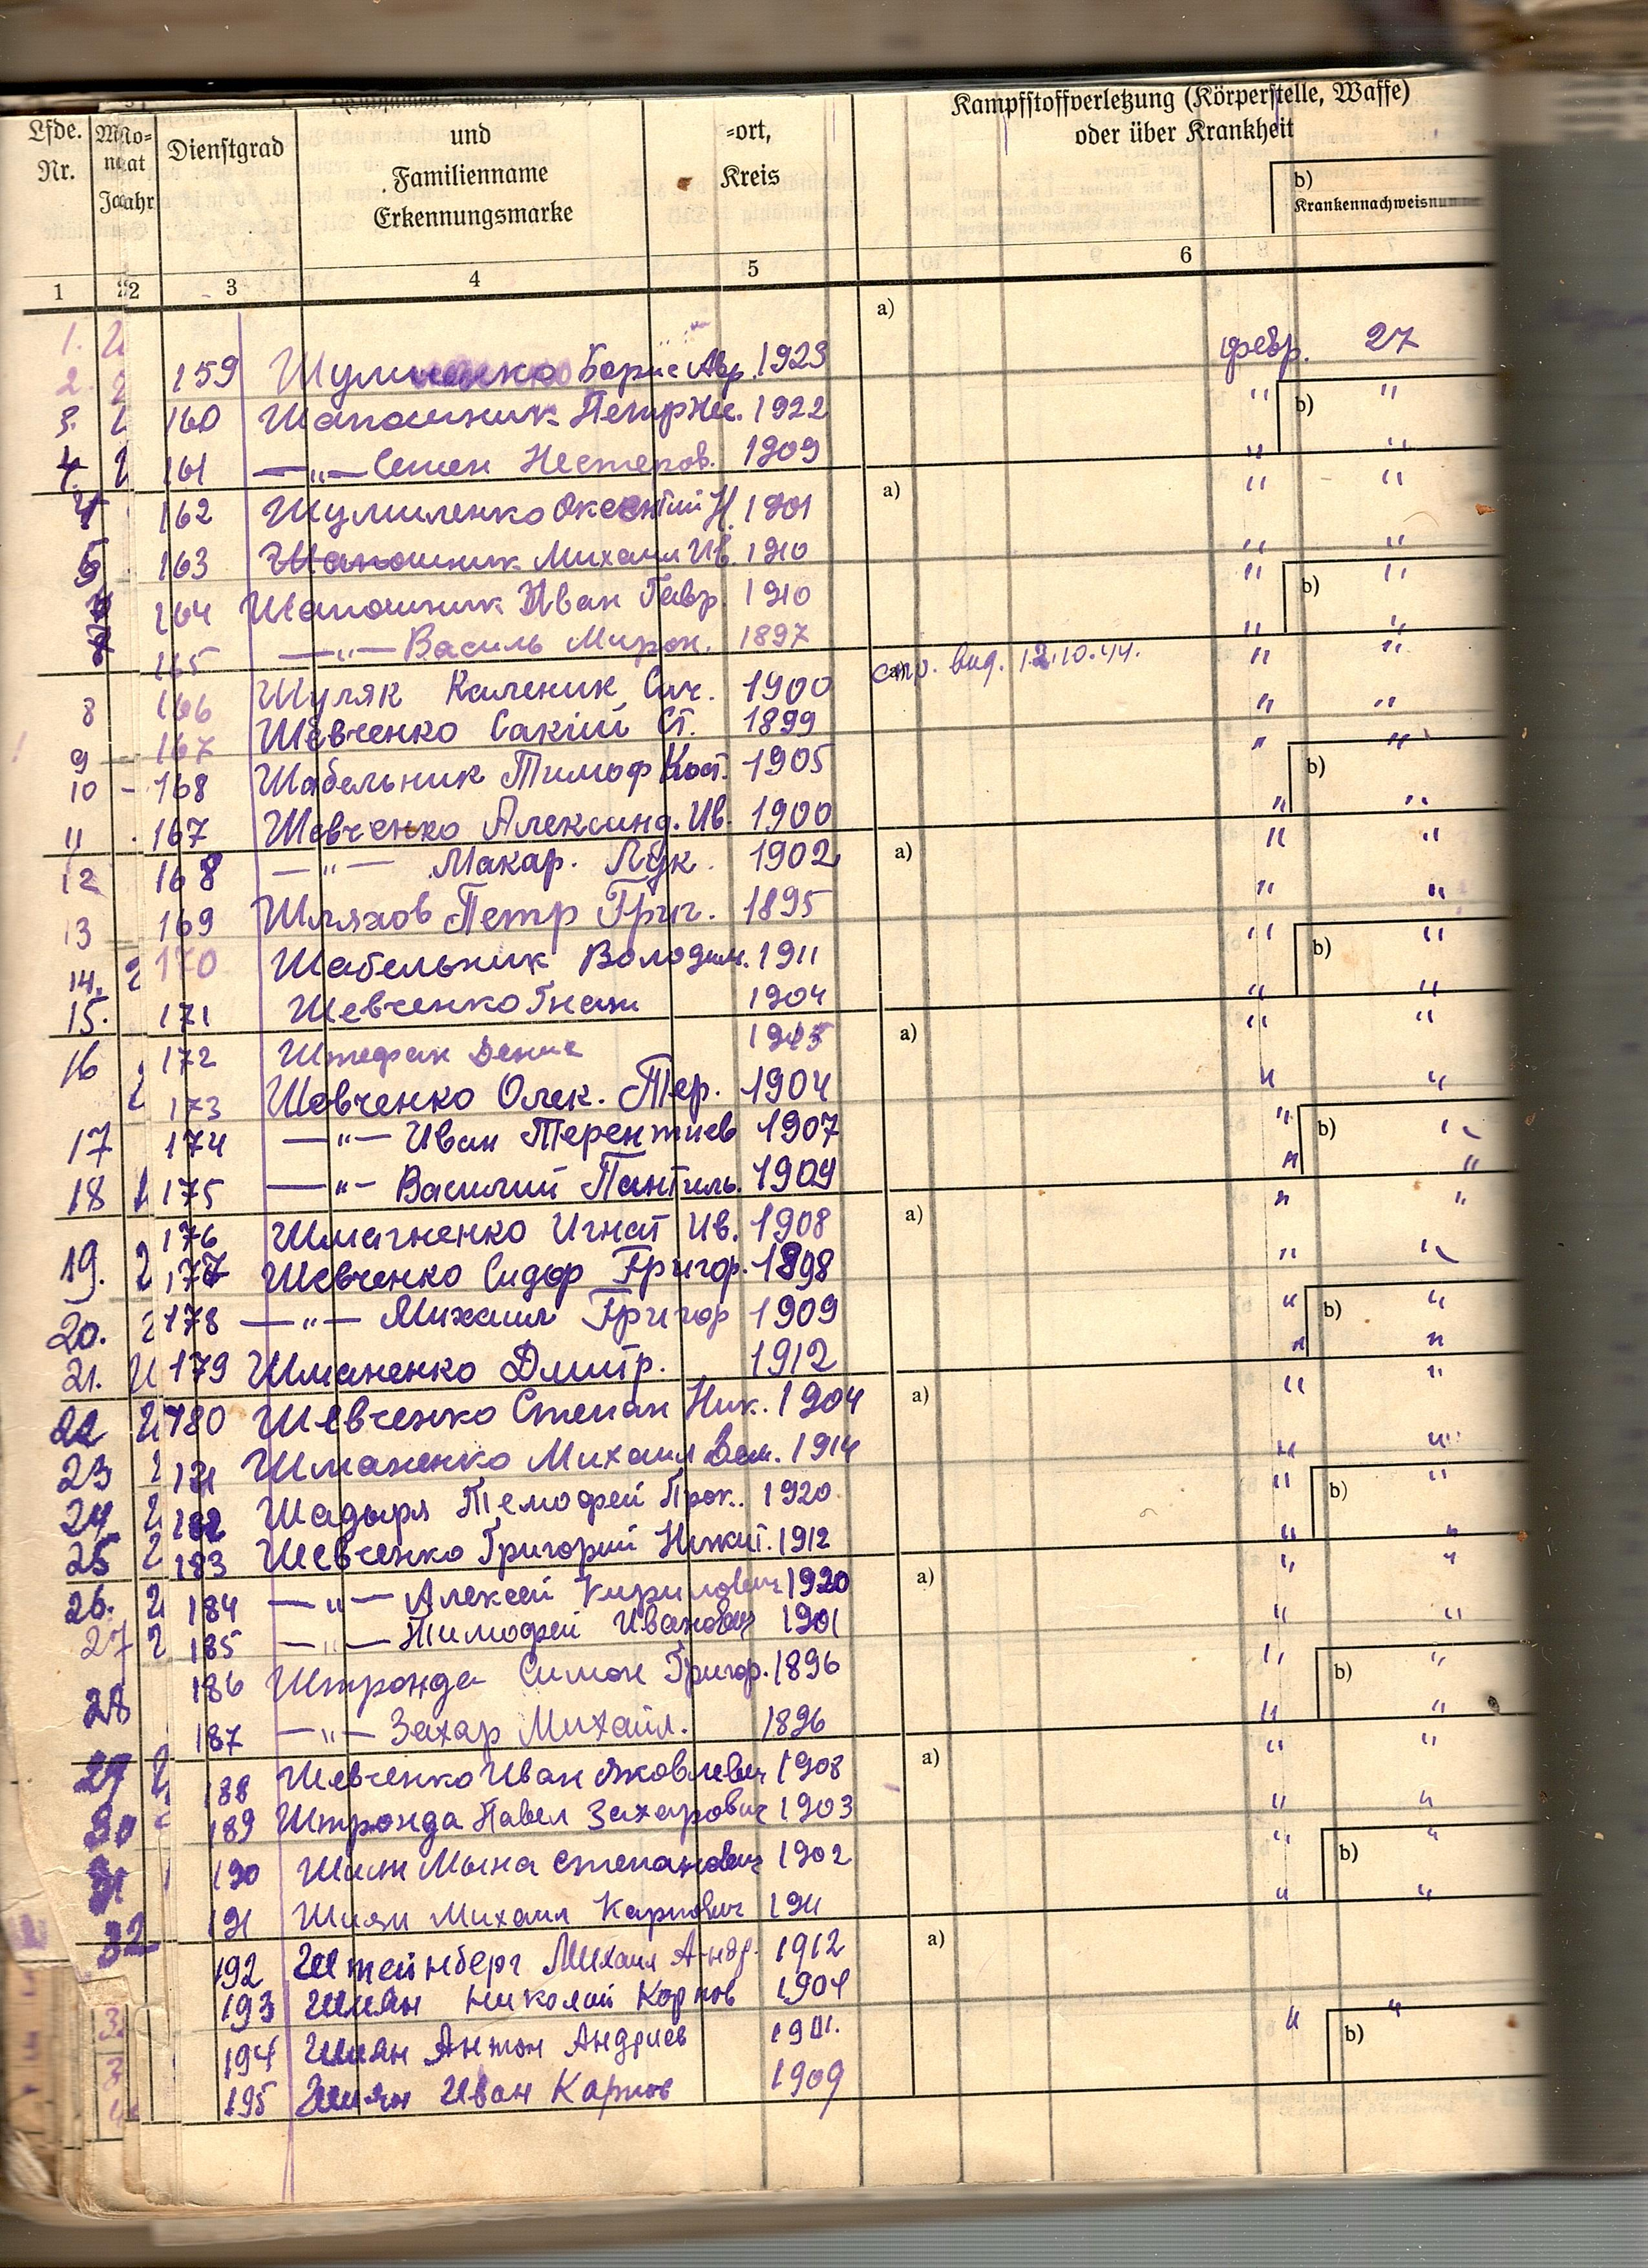 Lfde. Nr.
Mo- nat Jahr
Dienstgrad
und Familienname Erkennungsmarke
=ort, Kreis
Kampfstoffverletzung (Körperstelle, Waffe) oder über Krankheit
b) Krankennachweisnum
1 2 3 4 5 6
a)
1.
2. 159 Борис Авр. 1923 февр. 27
3. 160 Шапошник Петр 1922 " b) "
4. 161 —"— Семен Нестеров. 1909 " "
4 162 Шумиленко Оксентий Н. 1901 a) " "
163 Шапошник Михаил Ив. 1910 " "
164 Шапошник Иван Гавр. 1910 " b) "
165 —"— Василь Мирон. 1897 " "
8 166 Шуляк Каленик 1900 спр. вид. 12.10.44. " "
9 167 Шевченко Сакий Ст. 1899 " "
10 - 168 Шабельник Тимоф Кост. 1905 " b) "
11 167 Шевченко Александ. Ив. 1900 " "
12 168 —"— Макар. Лук. 1902 a) " "
13 169 Шляхов Петр Григ. 1895 " "
14. 2 170 Шабельник Володим. 1911 " b) "
15. 171 Шевченко Гнат 1904 " "
16 172 Штефан Денис a) " "
2 173 Шевченко Олек. Тер. 1904 " "
17 174 —"— Иван Терентиев 1907 " b) "
18 175 —"— Василий Пантиль. 1904 " "
176 Шмагненко Игнат Ив. 1908 a) " "
19. 2 177 Шевченко Сидор Григор. 1898 " "
20. 2 178 —"— Михаил Григор 1909 " b) "
21. 179 Шманенко Дмитр. 1912 " "
22 180 Шевченко Степан Ник. 1904 a) " "
23 181 Шманенко Михаил 1914 " "
24 2 182 Шадыря Темофей Прок. 1920 " b) "
25 2 183 Шевченко Григорий Никит. 1912 " "
26. 2 184 —"— Алексей Кирилович 1920 a) " "
27 2 185 —"— Тимофей Иванович 1901 " "
186 Штронда Симон Григор. 1896 " b) "
28 187 —"— Захар Михайл. 1896 " "
29 188 Шевченко Иван Яковлевич 1908 a) " "
30 189 Штронда Павел Захарович 1903 " "
31 190 Мына Степанович 1902 " b) "
191 Шиян Михаил Карпович 1911 " "
32 192 Штейнберг Михаил Андр. 1912 a)
193 Шиян Николай Корпов 1904
194 Шиян Антон Андриев 1901. " b) "
195 Шиян Иван Карпов 1909